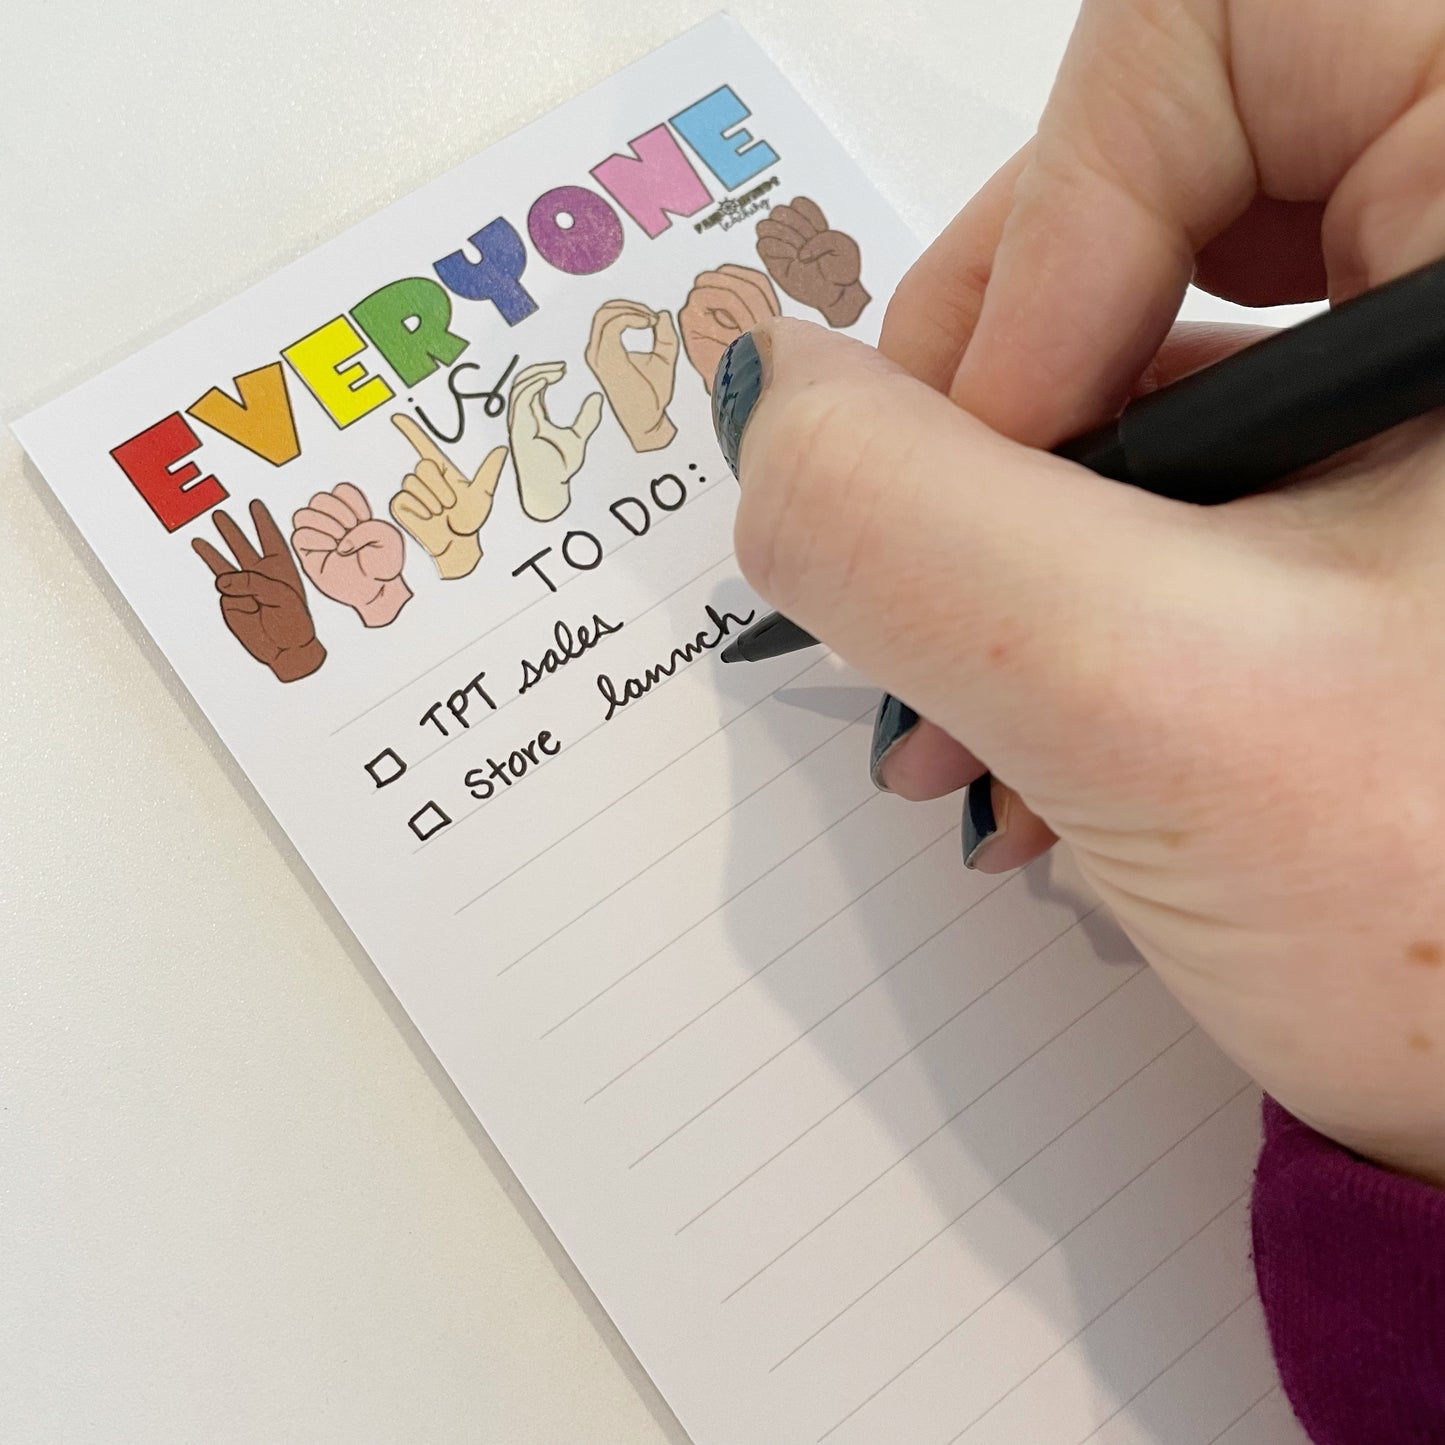 EVERYONE
is
TO DO:
TPT sales
Store launch